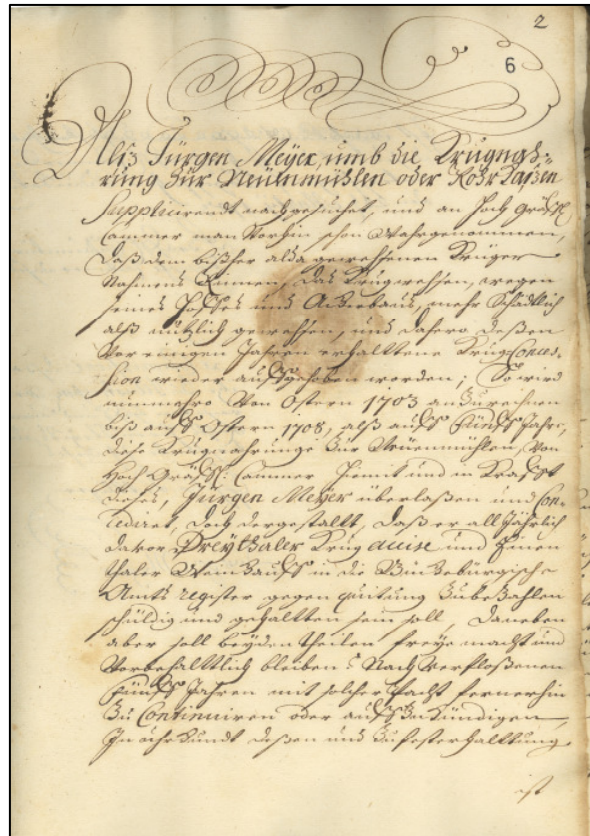 2
6
Alß Jürgen Meÿer, umb die Krugnah-
rung Zur Neüenmühlen oder Rohr Kaßen
Supplicirendt nachgesuchet, und an Hoch Gräffl.
Cammer man Vorhin schon Wahrgenommen,
Daß dem bißher alda gewesenen Krüger
Nahmens, das Krugwesen, wegen
seines Hoffes und Ackerbaus, mehr Schädtlich
alß nützlich gewesen, und dahero deßen
Vor einigen Jahren erhalttene Krug Conces-
sion wieder auffgehoben worden; So wird
nunmehro Von Ostern 1703 anzurechnen
biß auff Ostern 1708, alß auff Fünff Jahr,
diese Krugnahrunge Zur Neüenmühlen, Von
Hoch Gräffl: Cammer hiemit und in Krafft
dieses, Jürgen Meÿer überlaßen und Con-
cediret, doch dergestallt, daß er all Jährlich
davor Dreÿ thaler Krug accise und Einen
thaler Weinkauff in die Bückebürgische
Ambts register gegen quitung Zubezahlen
schüldig und gehaltten sein soll, Daneben
aber soll beÿden theilen freÿe macht und
Vorbehalttlich bleiben, Nach Verfloßenen
Fünff Jahren mit solcher Pacht fernerhin
Zu Continuiren oder auffzukündigen,
In uhrkundt deßen und Zu fester halltung
ist